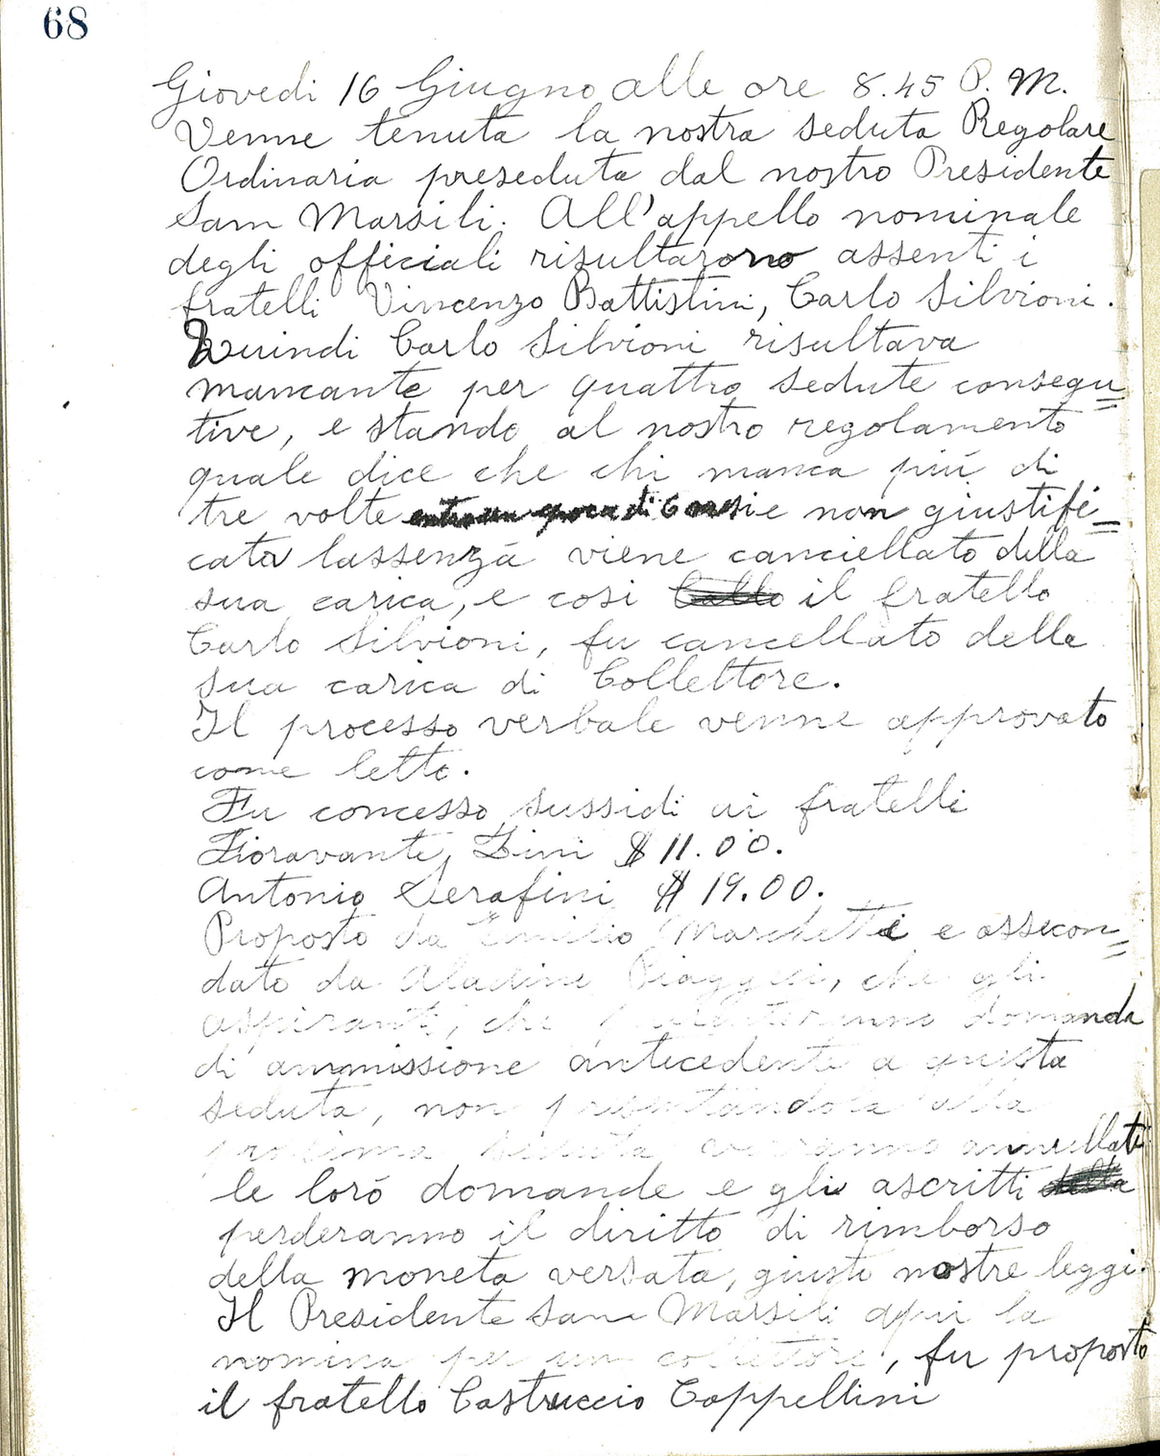 68
Giovedi 16 Giugno alle ore 8.45 P. M.
Venne tenuta la nostra seduta Regolare
Ordinaria preseduta dal nostro Presidente
Sam Marsili. All'appello nominale
degli officiali risultarono assenti i
fratelli Vincenzo Battistini, Carlo Silvioni.
Quindi Carlo Silvioni risultava
mancante per quattro sedute consegu=
tive, e stando al nostro regolamento
quale dice che chi manca piú di
tre volte entro un epoca di 6 mesi e non giustifi=
cata lassenzá viene canciellato della
sua carica, e cosi il fratello
Carlo Silvioni, fu cancellato della
sua carica di Collettore.
Il processo verbale venne approvato
come letto.
Fu concesso sussidi ai fratelli
Fioravante, Dini $ 11.00.
Antonio Serafini $ 19.00.
Proposto da Emilio Marchetti e assecon=
dato da Aladino Piaggesi, che gli
aspiranti, che presenteranno domanda
di ammissione antecedente a questa
seduta, non presentandola alla
prossima seduta verranno annullati
le loró domande e gli ascritti
perderanno il diritto di rimborso
della moneta versata, giusto nostre leggi.
Il Presidente Sam Marsili aprì la
nomina per un collettore, fu proposto
il fratello Castruccio Cappellini